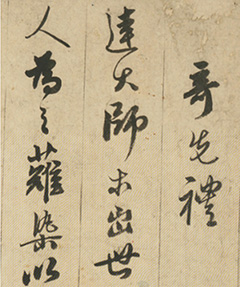 哥先禮
達大師未出世
人為之薙染以